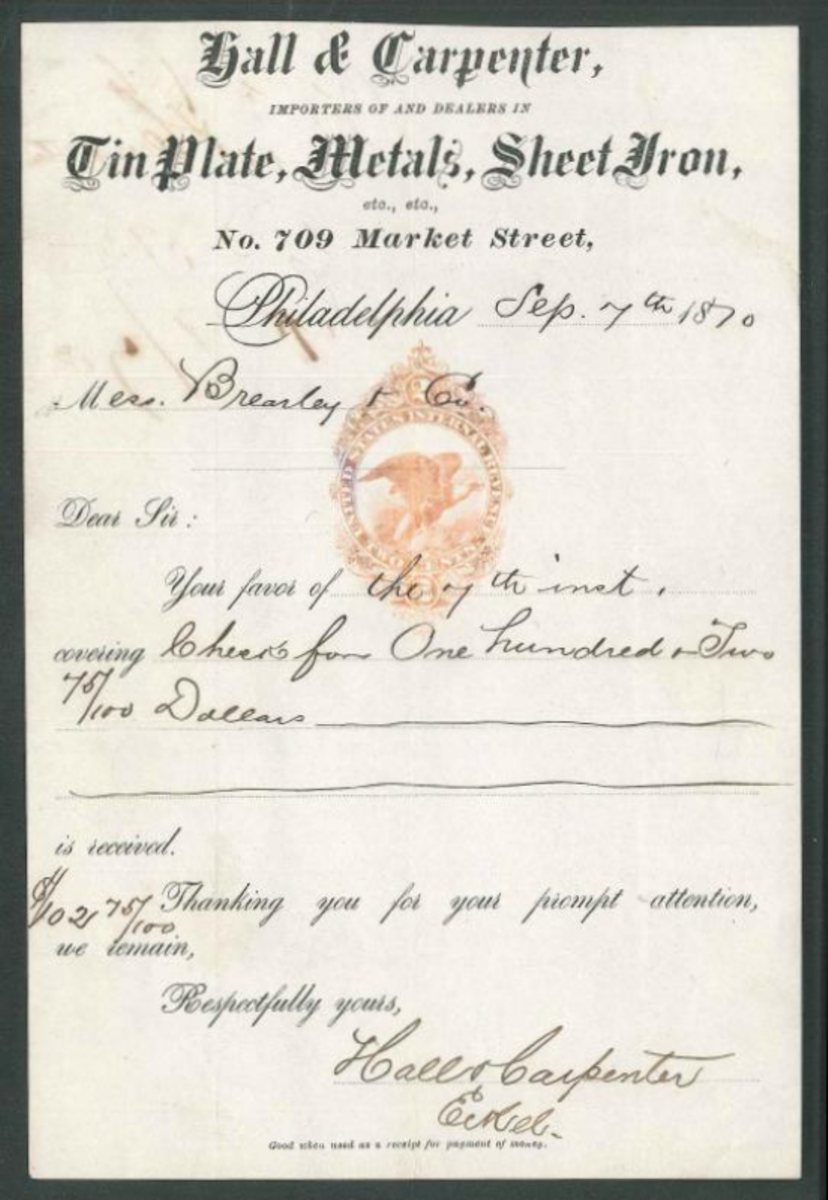 Hall & Carpenter,
IMPORTERS OF AND DEALERS IN
Tin Plate, Metals, Sheet Iron,
etc., etc.,
No. 709 Market Street,
Philadelphia Sep. 7th 1870
Mess. Brearley & Co.
UNITED STATES INTERNAL REVENUE
TWO CENTS
2
Dear Sir:
Your favor of the 7th inst.
covering Check for One hundred & Two
75/100 Dollars
is received.
$102 75/100 Thanking you for your prompt attention,
we remain,
Respectfully yours,
Hall & Carpenter
Good when used as a receipt for payment of money.